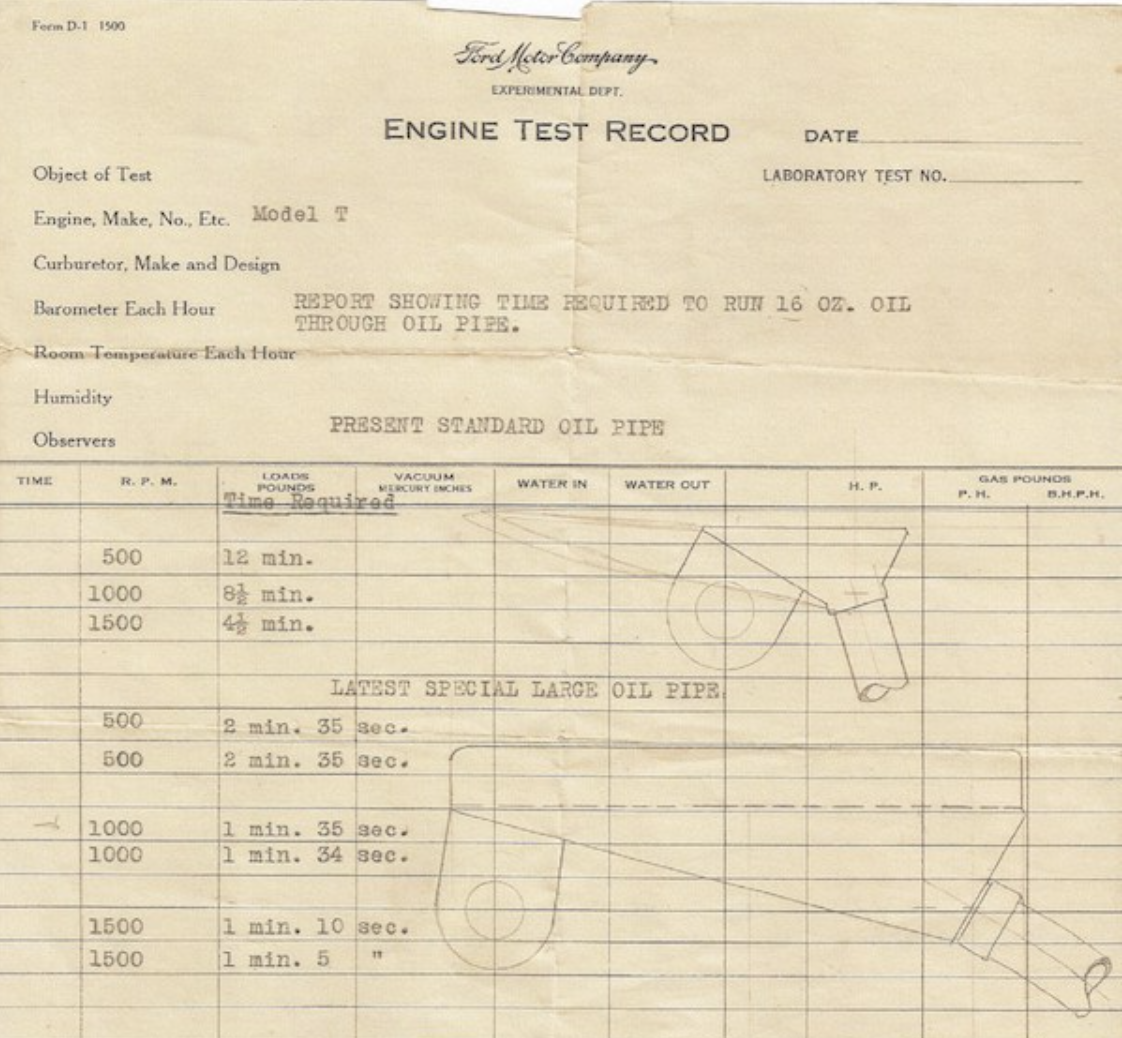 Form D-1 1500
Ford Motor Company
EXPERIMENTAL DEPT.
ENGINE TEST RECORD
DATE
Object of Test
LABORATORY TEST NO.
Engine, Make, No., Etc. Model T
Curburetor, Make and Design
Barometer Each Hour REPORT SHOWING TIME REQUIRED TO RUN 16 OZ. OIL
THROUGH OIL PIPE.
Room Temperature Each Hour
Humidity
PRESENT STANDARD OIL PIPE
Observers
TIME R. P. M. LOADS POUNDS VACUUM MERCURY INCHES WATER IN WATER OUT H. P. GAS POUNDS P. H. B.H.P.H.
Time Required
500 12 min.
1000 8½ min.
1500 4½ min.
LATEST SPECIAL LARGE OIL PIPE
500 2 min. 35 sec.
500 2 min. 35 sec.
1000 1 min. 35 sec.
1000 1 min. 34 sec.
1500 1 min. 10 sec.
1500 1 min. 5 "